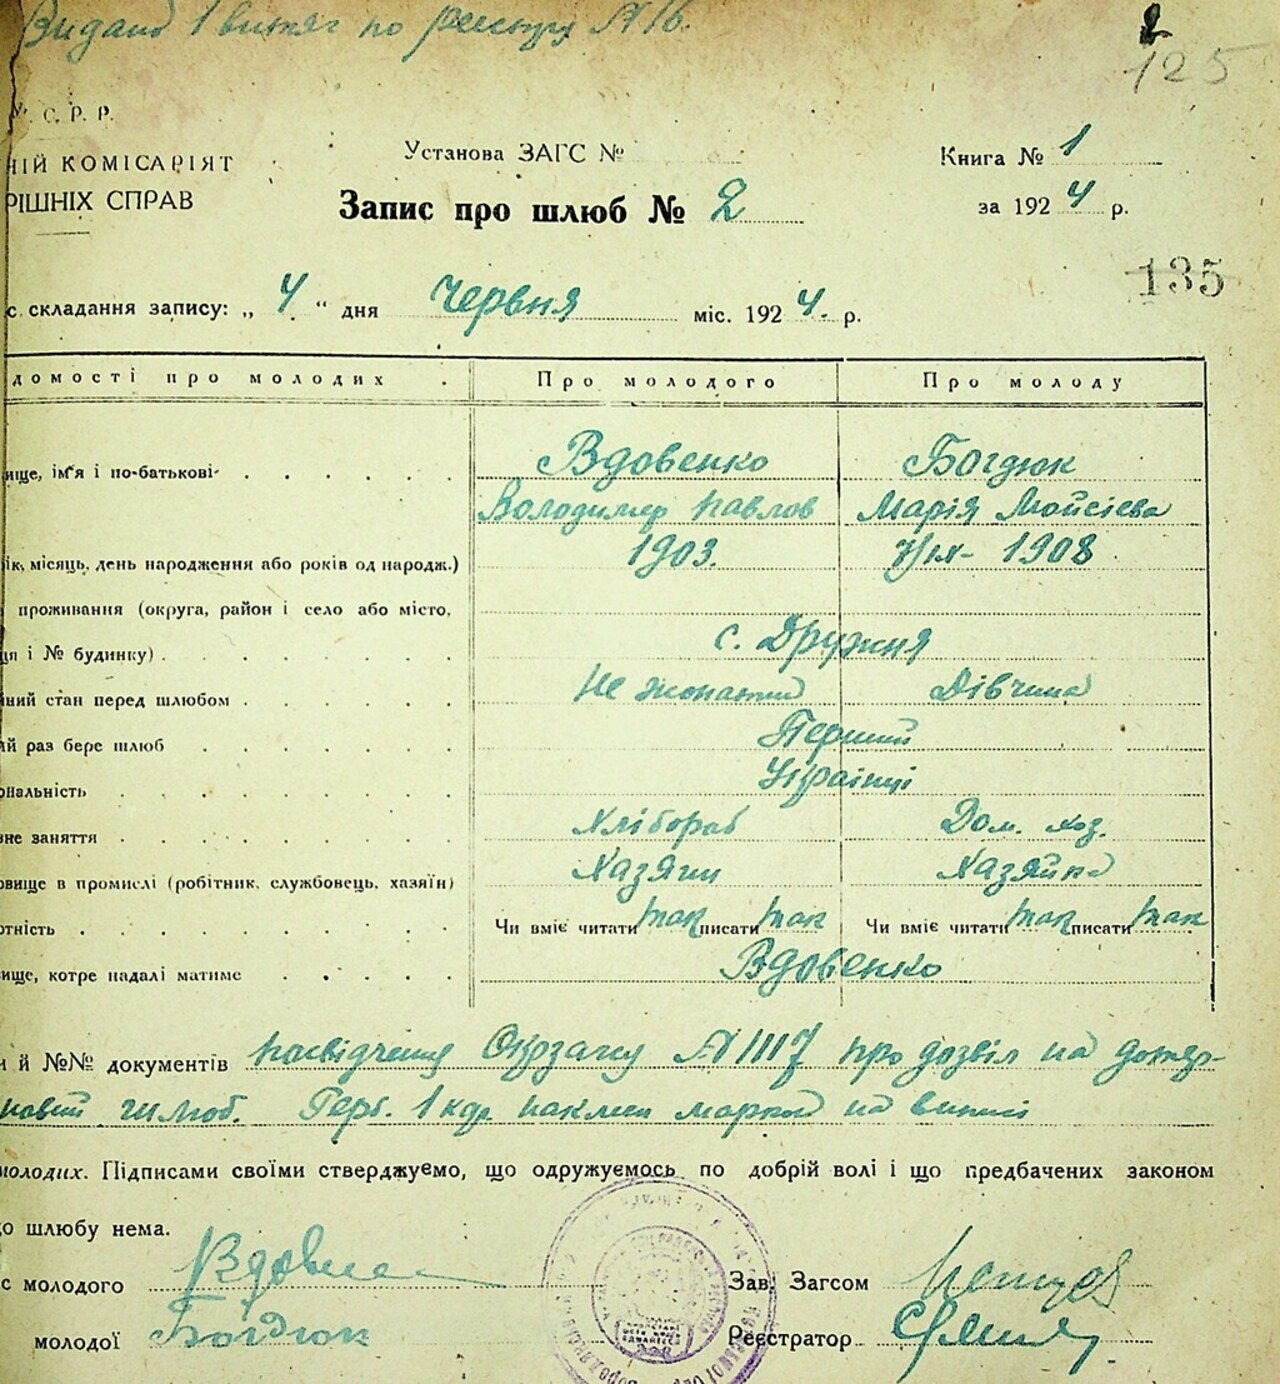 Видано 1 витяг по реєстру №16.
2
125
У. С. Р. Р.
НІЙ КОМІСАРІЯТ
РІШНІХ СПРАВ
Установа ЗАГС №
Книга № 1
Запис про шлюб № 2
за 1924 р.
135
с складання запису: „ 4 “ дня Червня міс. 1924. р.
домості про молодих . Про молодого Про молоду
ище, ім'я і по-батькові Вдовенко Богдюк
Володимер Павлов Марія Мойсієва
ік, місяць, день народження або років од народж.) 1903. 7/ІХ- 1908
проживання (округа, район і село або місто,
ця і № будинку) с. Дружня
ний стан перед шлюбом Не жонатий Дівчина
ий раз бере шлюб Перший
ональність Українці
вне заняття Хлібороб Дом. хоз.
овище в промислі (робітник, службовець, хазяїн) Хазяин Хазяйка
отність Чи вміє читати так писати так Чи вміє читати так писати так
ище, котре надалі матиме Вдовенко
и й №№ документів посвідчення Окрзагсу №1117 про дозвіл на дотер-
новий шлюб. Герб. 1 кр. наклеи маркой на виписі
молодих. Підписами своїми стверджуємо, що одружуємось по добрій волі і що предбачених законом
до шлюбу нема.
с молодого Вдовен
Зав. Загсом
молодої Богдюк
Реєстратор